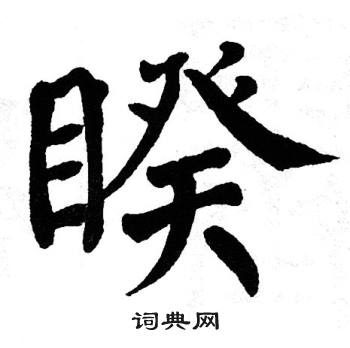 睽
词典网